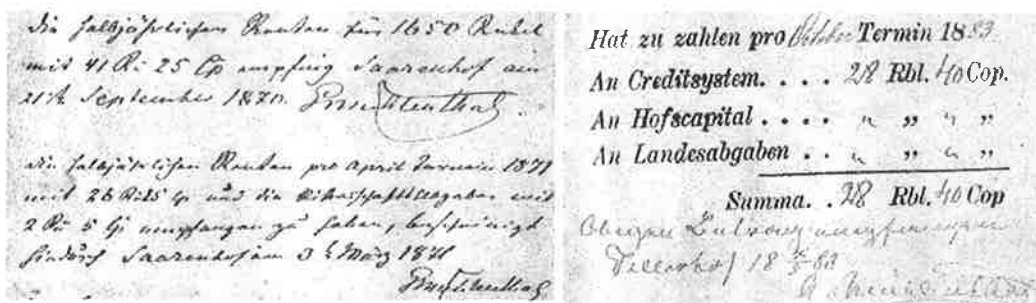 die halbjährlichen Renten für 1650 Rubel
mit 41 Ru 25 Cp empfing Saarenhof am
21t September 1870.
die halbjährlichen Renten pro April Termin 1871
mit 26 und die Ritterschaftsabgaben mit
2 Ru 5 Cp empfangen zu haben, bescheinigt
hiedurch Saarenhof am 3t März 1871
Hat zu zahlen pro October Termin 1883.
An Creditsystem. . . . 28 Rbl. 40 Cop.
An Hofscapital . . . . „ „ „ „
An Landesabgaben . . „ „ „ „
Summa. . 28 Rbl. 40 Cop
Obigen Betrag empfangen
18 83